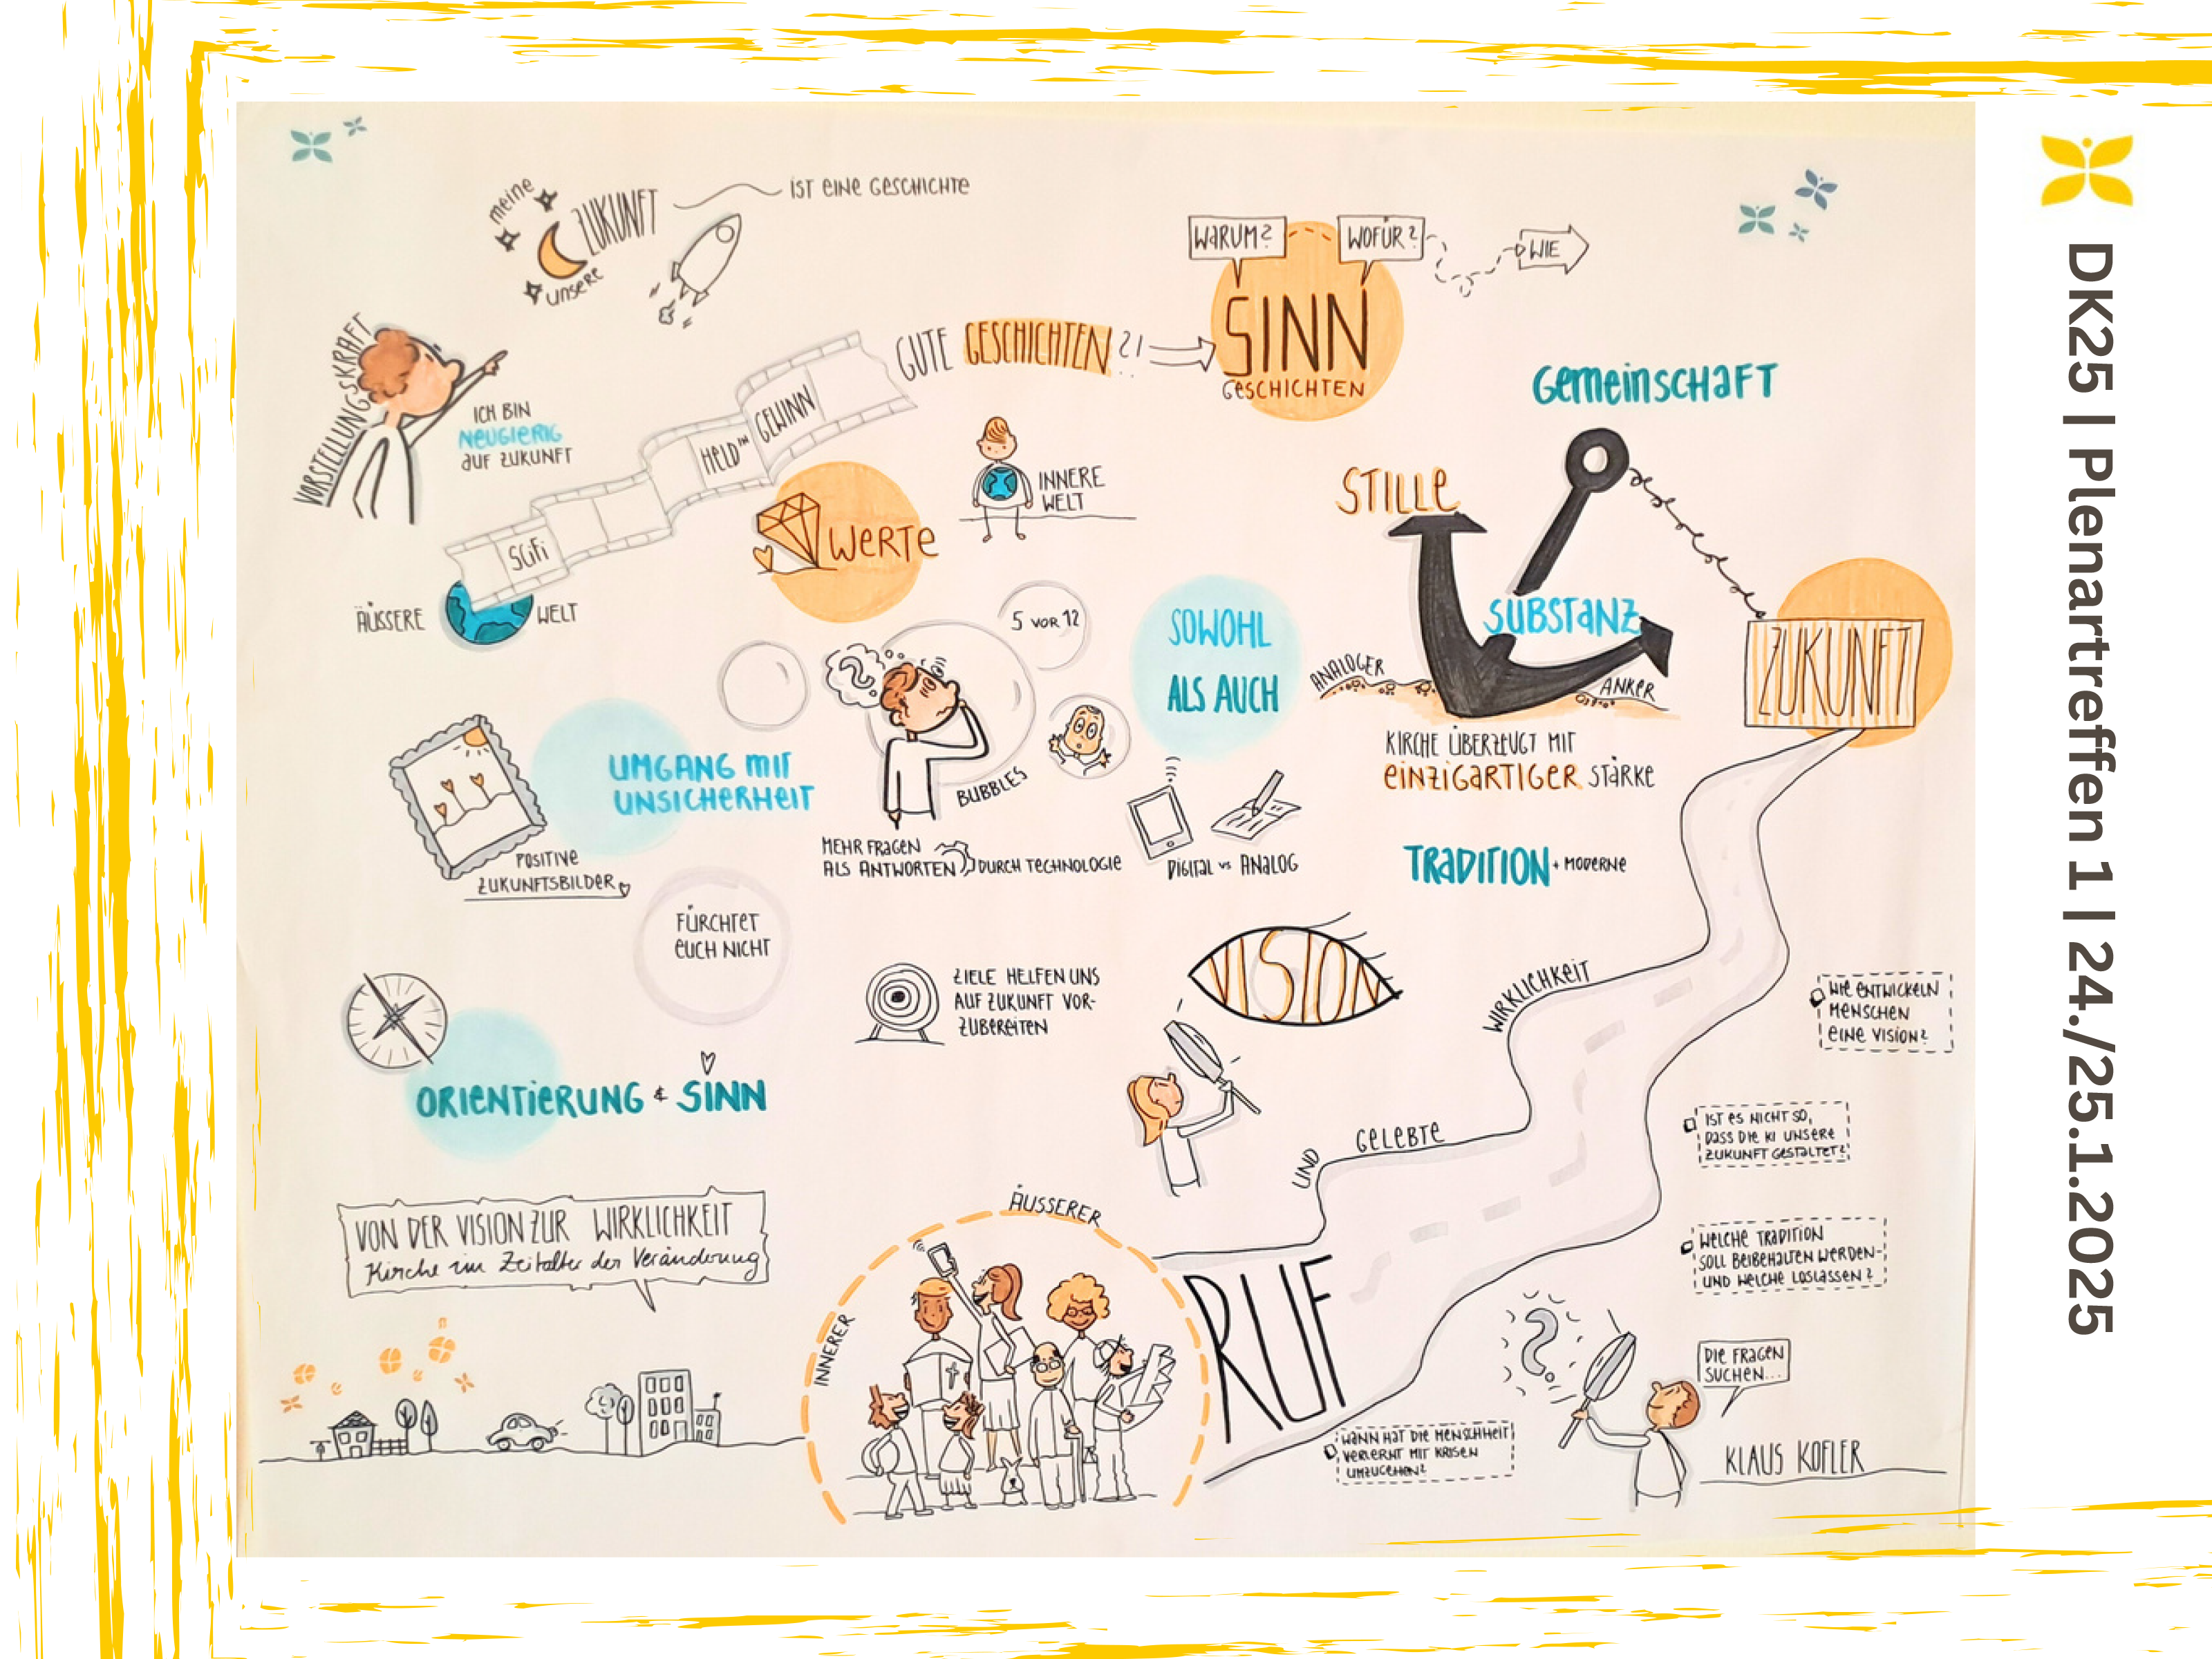 meine
ZUKUNFT
unsere
IST EINE GESCHICHTE
VORSTELLUNGSKRAFT
ICH BIN
NEUGIERIG
AUF ZUKUNFT
SCIFI
HELD*IN
GEWINN
ÄUSSERE
WELT
GUTE GESCHICHTEN ?!
WARUM?
WOFÜR?
WIE
SINN
GESCHICHTEN
WERTE
INNERE
WELT
GEMEINSCHAFT
STILLE
SUBSTANZ
ANALOGER
ANKER
KIRCHE ÜBERZEUGT MIT
EINZIGARTIGER STÄRKE
TRADITION + MODERNE
ZUKUNFT
5 VOR 12
?
BUBBLES
SOWOHL
ALS AUCH
UMGANG MIT
UNSICHERHEIT
POSITIVE
ZUKUNFTSBILDER
MEHR FRAGEN
ALS ANTWORTEN
DURCH TECHNOLOGIE
DIGITAL vs ANALOG
FÜRCHTET
EUCH NICHT
ZIELE HELFEN UNS
AUF ZUKUNFT VOR-
ZUBEREITEN
VISION
ORIENTIERUNG & SINN
VON DER VISION ZUR WIRKLICHKEIT
Kirche im Zeitalter der Veränderung
INNERER
ÄUSSERER
RUF
UND
GELEBTE
WIRKLICHKEIT
WIE ENTWICKELN
MENSCHEN
EINE VISION?
IST ES NICHT SO,
DASS DIE KI UNSERE
ZUKUNFT GESTALTET?
WELCHE TRADITION
SOLL BEIBEHALTEN WERDEN-
UND WELCHE LOSLASSEN?
WANN HAT DIE MENSCHHEIT
VERLERNT MIT KRISEN
UMZUGEHEN?
?
DIE FRAGEN
SUCHEN...
KLAUS KOFLER
DK25 | Plenartreffen 1 | 24./25.1.2025